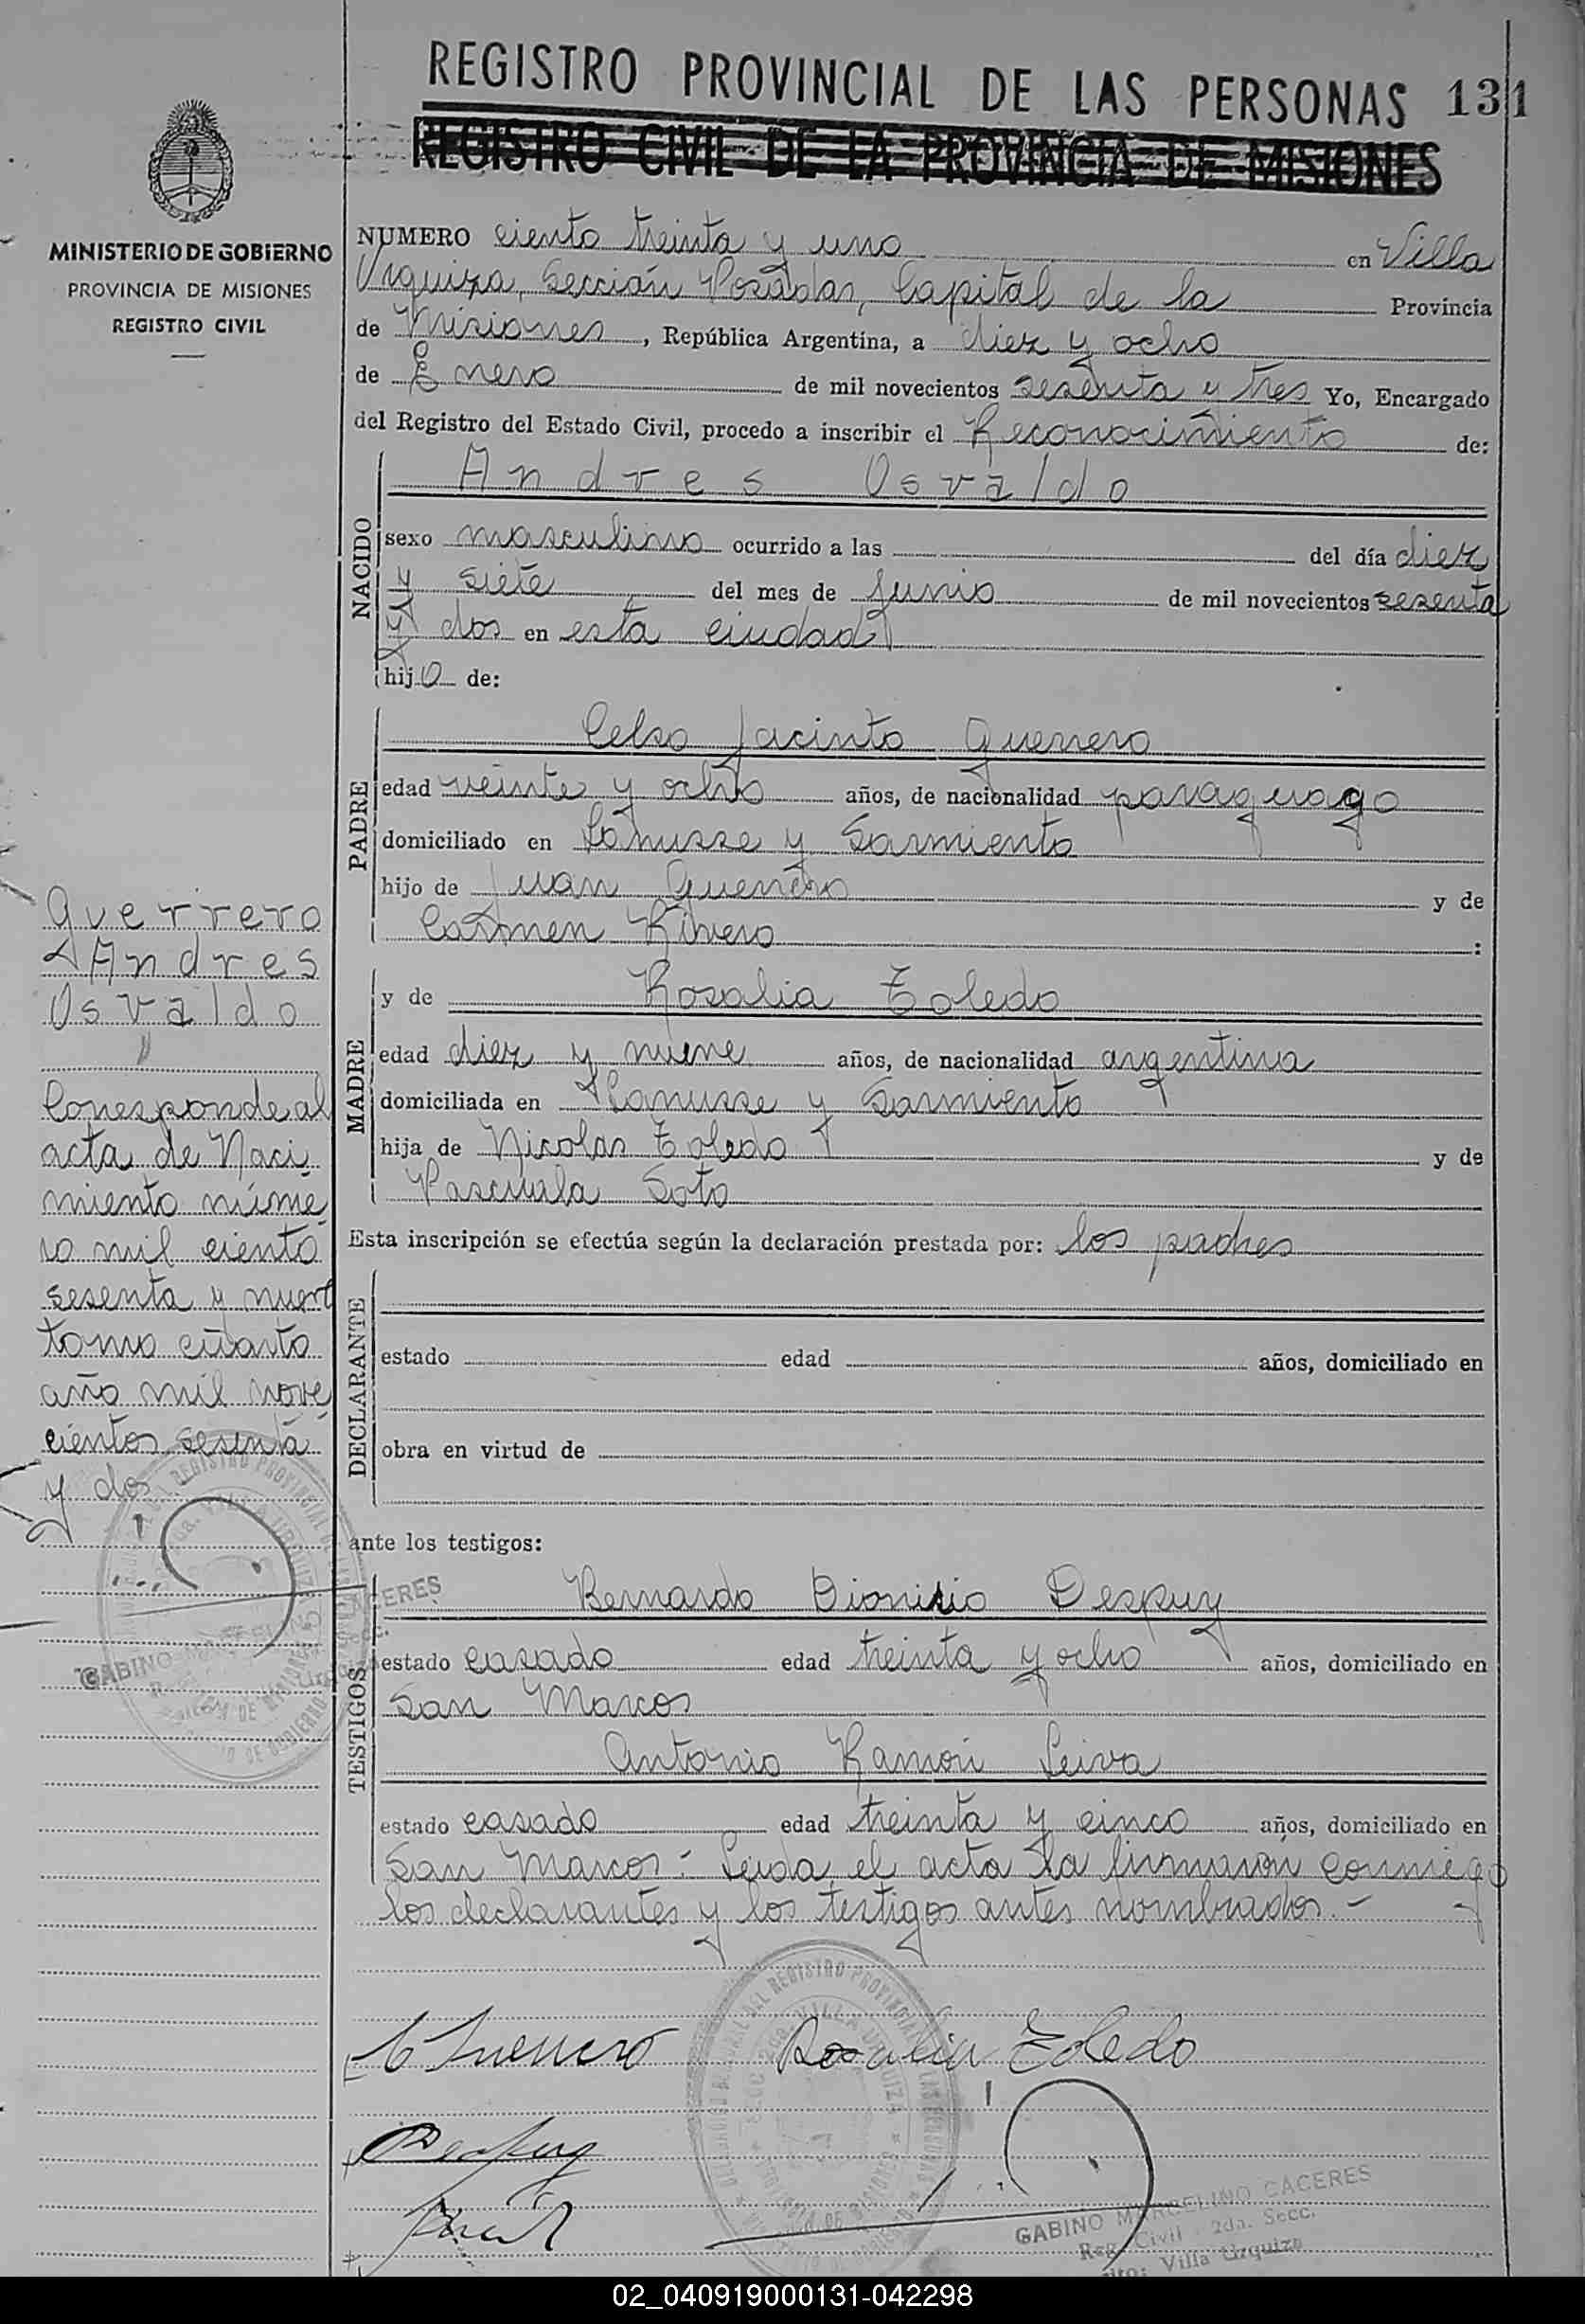 REGISTRO PROVINCIAL DE LAS PERSONAS 131
REGISTRO CIVIL DE LA PROVINCIA DE MISIONES
MINISTERIO DE GOBIERNO
PROVINCIA DE MISIONES
REGISTRO CIVIL
NUMERO ciento treinta y uno en Villa
Urquiza, Sección Posadas, Capital de la Provincia
de Misiones, República Argentina, a diez y ocho
de Enero de mil novecientos sesenta y tres Yo, Encargado
del Registro del Estado Civil, procedo a inscribir el Reconocimiento de:
NACIDO
Andres Osvaldo
sexo masculino ocurrido a las del día diez
y siete del mes de Junio de mil novecientos sesenta
y dos en esta ciudad
hijo de:
PADRE
Celso Jacinto Guerrero
edad veinte y ocho años, de nacionalidad paraguayo
domiciliado en Lanusse y Sarmiento
hijo de Juan Guerrero y de
Carmen Rivero :
MADRE
y de Rosalia Toledo
edad diez y nueve años, de nacionalidad argentina
domiciliada en Lanusse y Sarmiento
hija de Nicolas Toledo y de
Pascuala Soto
Esta inscripción se efectúa según la declaración prestada por: los padres
DECLARANTE
estado edad años, domiciliado en
obra en virtud de
ante los testigos:
TESTIGOS
Bernardo Dionisio Despuy
estado casado edad treinta y ocho años, domiciliado en
San Marcos
Antonio Ramón Leiva
estado casado edad treinta y cinco años, domiciliado en
San Marcos.- Leida el acta la firmaron conmigo
los declarantes y los testigos antes nombrados.-
Guerrero
Andres
Osvaldo
Corresponde al
acta de Naci
miento núme
ro mil ciento
sesenta y nueve
tomo cuarto
año mil nove
cientos sesenta
y dos
C Guerrero Rosalia Toledo
Despuy
GABINO MARCELINO CACERES
Reg. Civil - 2da. Secc.
Villa Urquiza
02_040919000131-042298